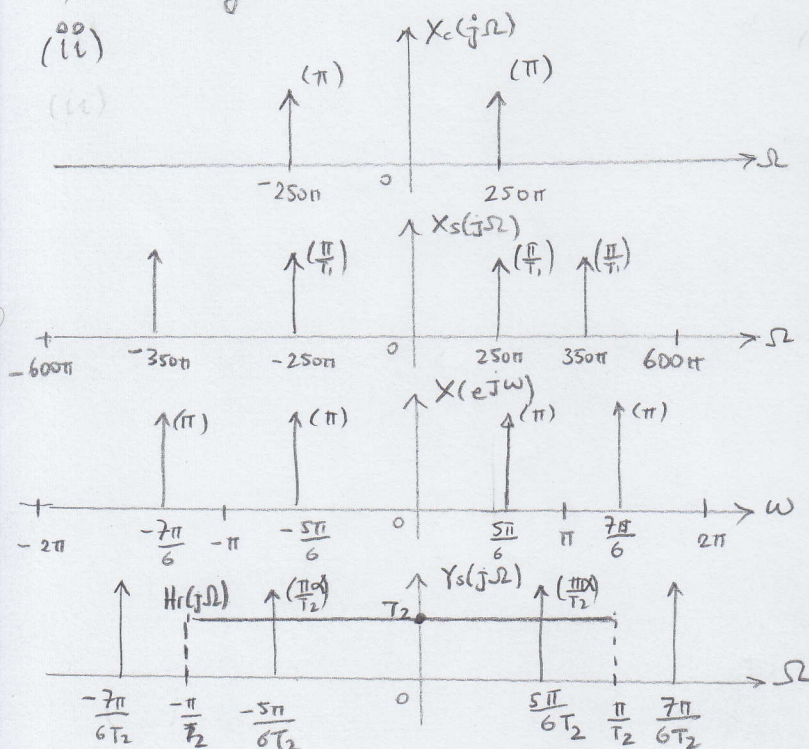 (ii)
(ii)
Xc(jΩ)
(π) (π)
-250π 0 250π Ω
Xs(jΩ)
(π/T₁) (π/T₁) (π/T₁)
-600π -350π -250π 0 250π 350π 600π Ω
X(ejω)
(π) (π) (π) (π)
-2π -7π/6 -π -5π/6 0 5π/6 π 7π/6 2π ω
Hr(jΩ) (πα/T₂) Ys(jΩ) (πα/T₂)
T₂
-7π/6T₂ -π/T₂ -5π/6T₂ 0 5π/6T₂ π/T₂ 7π/6T₂ Ω